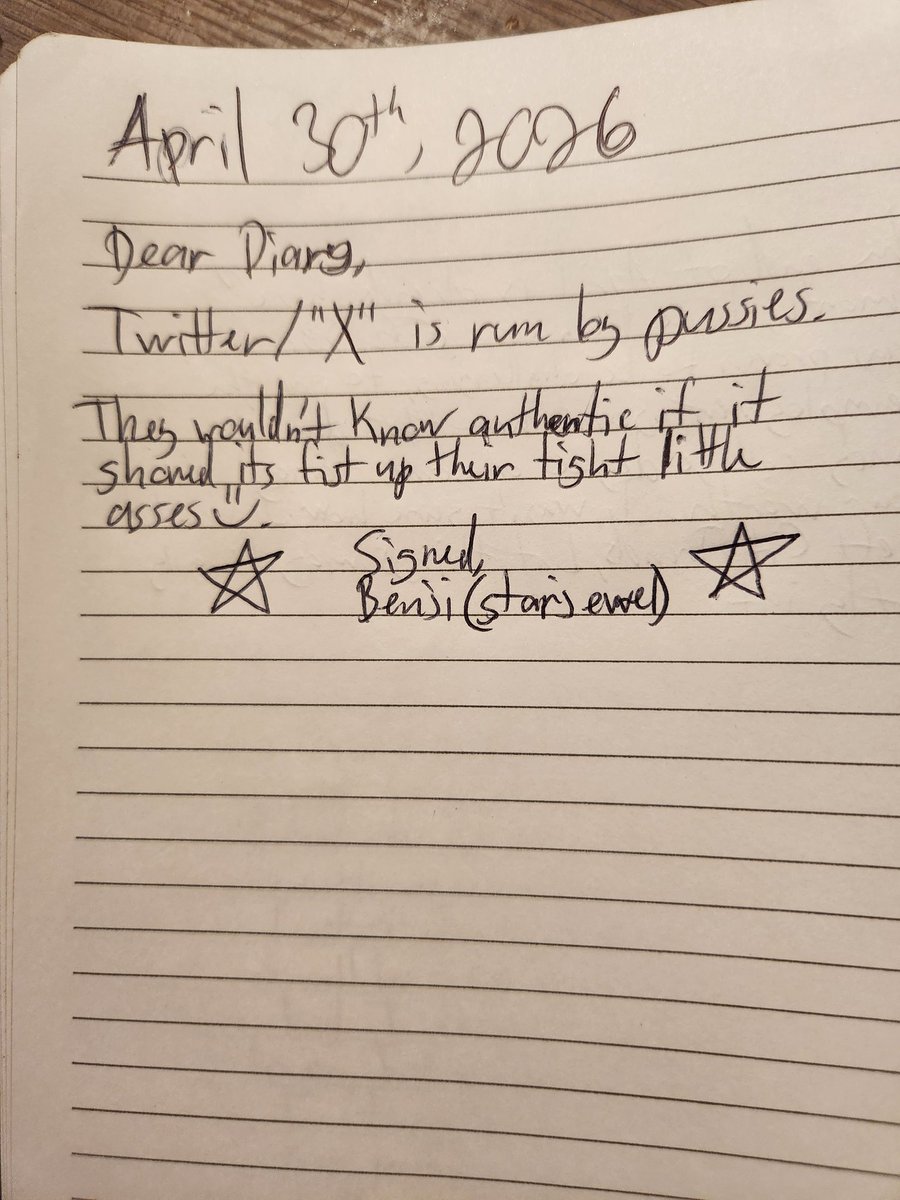 April 30th, 2026
Dear Diary,
Twitter/"X" is run by pussies.
They wouldn't know authentic if it
shoved its fist up their tight little
asses
Signed,
Benji (star's